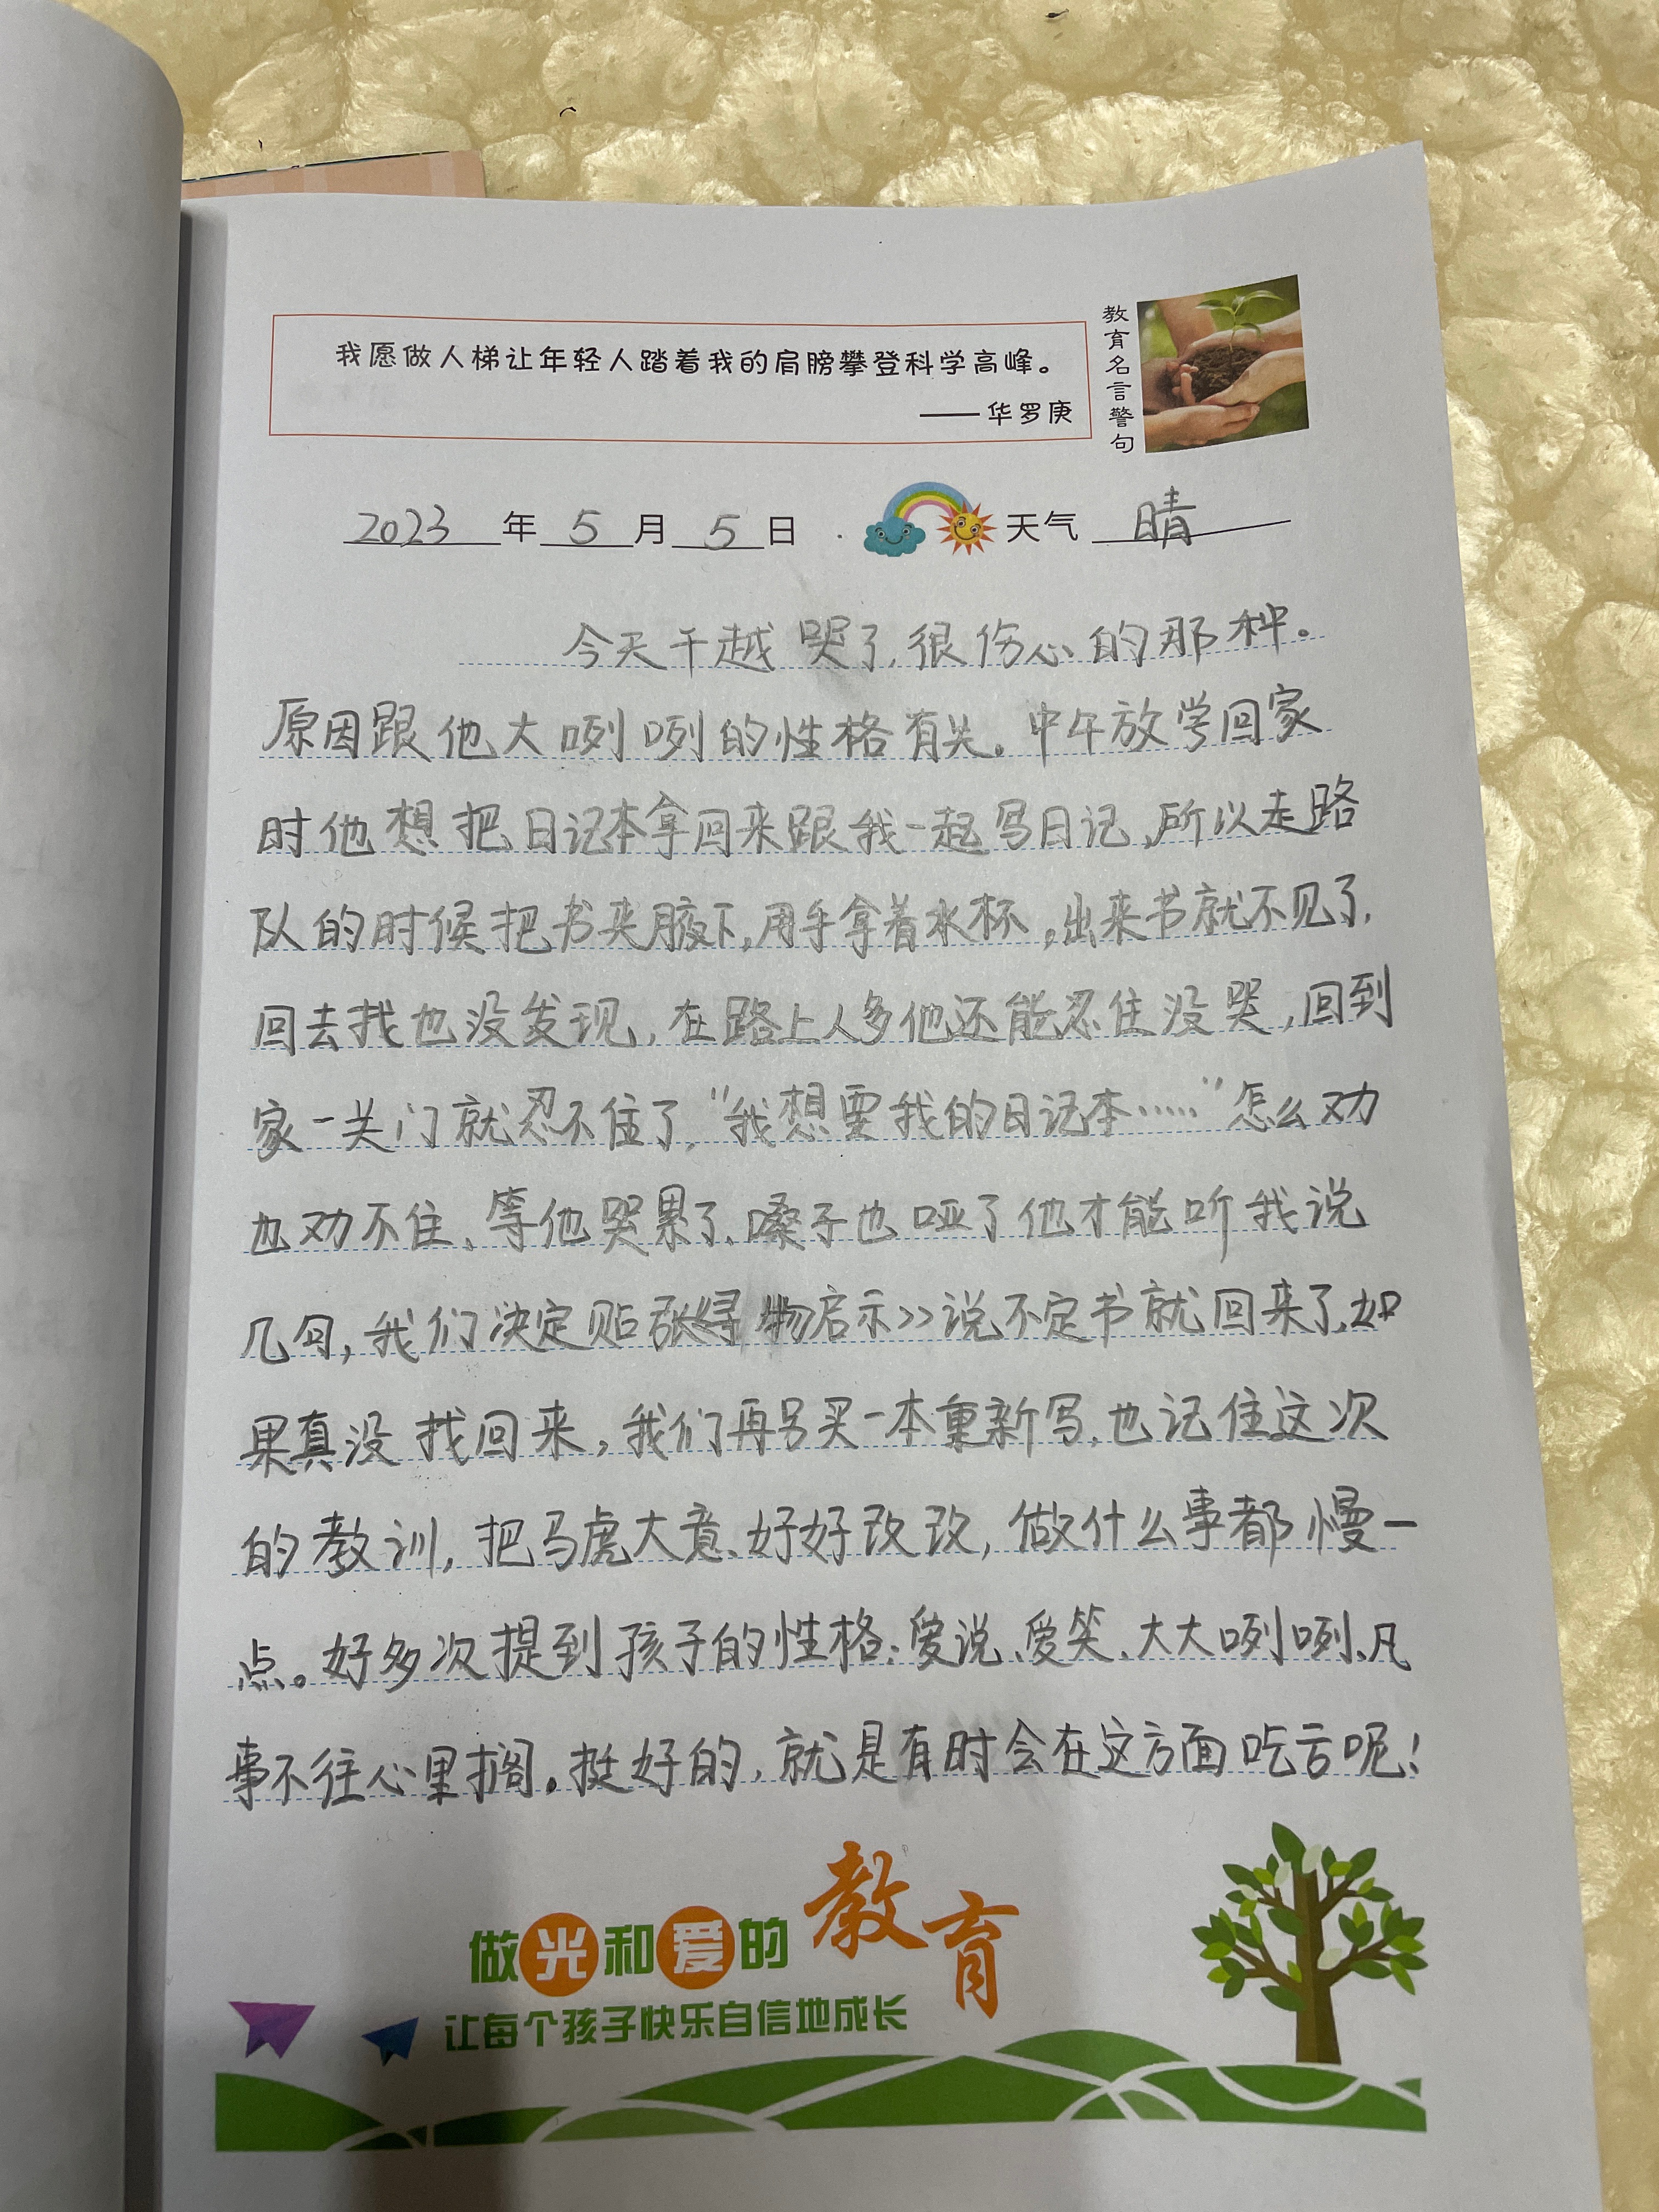 我愿做人梯让年轻人踏着我的肩膀攀登科学高峰。
——华罗庚
教育名言警句
2023年5月5日 天气 晴
今天千越哭了,很伤心的那种。
原因跟他大咧咧的性格有关。中午放学回家
时他想把日记本拿回来跟我一起写日记,所以走路
队的时候把书夹腋下,用手拿着水杯,出来书就不见了,
回去找也没发现,在路上人多他还能忍住没哭,回到
家一关门就忍不住了,"我想要我的日记本……"怎么劝
也劝不住、等他哭累了,嗓子也哑了他才能听我说
几句,我们决定贴张《寻物启示》说不定书就回来了,如
果真没找回来,我们再另买一本重新写,也记住这次
的教训,把马虎大意、好好改改,做什么事都慢一
点。好多次提到孩子的性格:爱说、爱笑、大大咧咧、凡
事不往心里搁。挺好的,就是有时会在这方面吃亏呢!
做光和爱的教育
让每个孩子快乐自信地成长